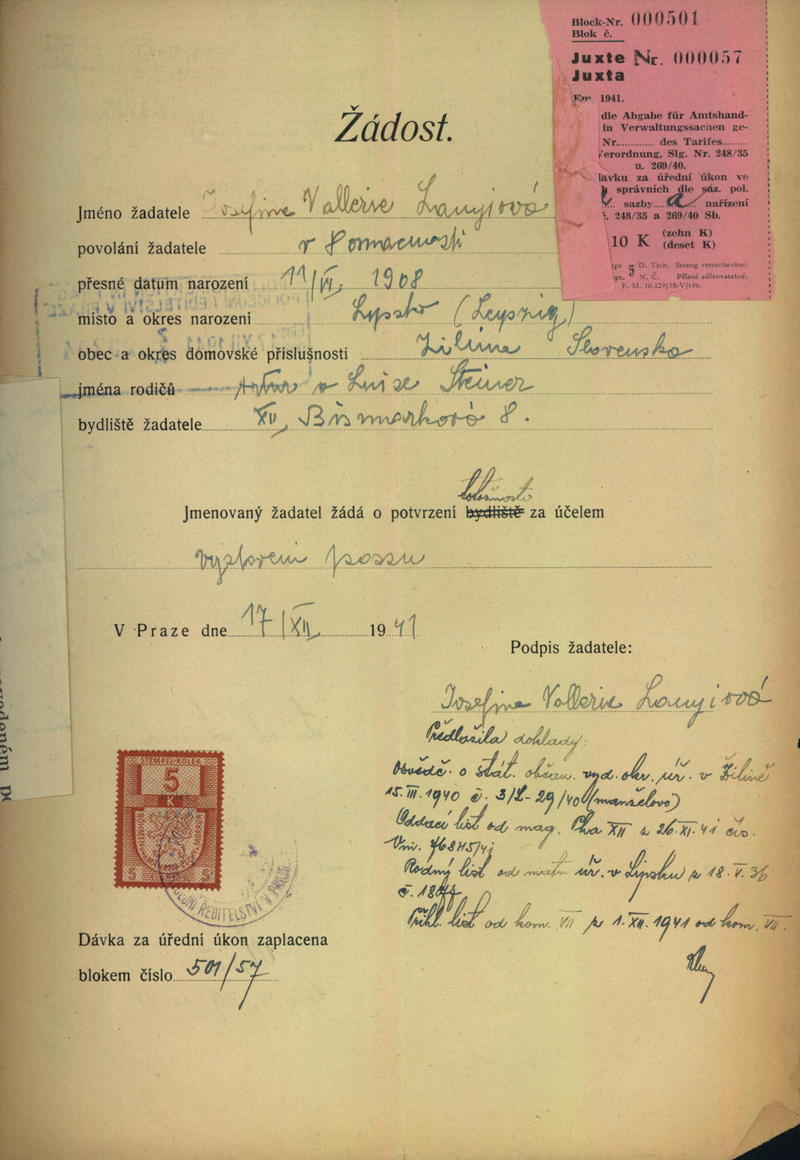 Block-Nr. 000501
Blok č.
Juxte Nr. 000057
Juxta
1941.
die Abgabe für Amtshand-
in Verwaltungssachen ge-
Nr............ des Tarifes........
erordnung, Slg. Nr. 248/35
u. 269/40.
dávku za úřední úkon ve
správních dle saz. pol.
sazby.... a nařízení
č. 248/35 a 269/40 Sb.
10 K (zehn K)
(deset K)
D. Tsch. Streng verrechenbar.
N. Č. Přísně súčtovatelné.
F. M. 10.129/38-V/14b.
Žádost.
Jméno žadatele Josefine Vallerie Lanyiová
povolání žadatele v domacnosti
přesné datum narození 11/VI. 1908
místo a okres narození Lypsko (Leypzig)
obec a okres domovské příslušnosti Žilina Slovensko
jména rodičů Artur a Luise Steiner
bydliště žadatele XII, Bismarkova 8.
totožnosti
Jmenovaný žadatel žádá o potvrzení bydliště za účelem
vystaveni passu
V Praze dne 17/XII 1941
Podpis žadatele:
Josefine Vallerie Lanyiová
Předložila doklady:
Osvědč. o stát. občan. vyd. okr. úř. v Žilině
15.III.1940 č. 3/L-29/40 (manželovo)
Oddací list od mag. Pha XII z 26.XI.41 čís.
Rodný list od matr. úř. v Lipsku z 18.V.36
Přihl. list od kom. VII z 1.XII.1941 od kom. VII.
STEMPEL-KOLEK
5
K
5 5
ŘEDITELSTVÍ V PRAZE
Dávka za úřední úkon zaplacena
blokem číslo 501/57